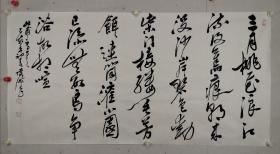 三月桃花浪江
流復舊痕朝來
沒沙尾碧色動
柴門接縷垂芳
餌連筒灌小園
已添無數鳥爭
浴故相喧